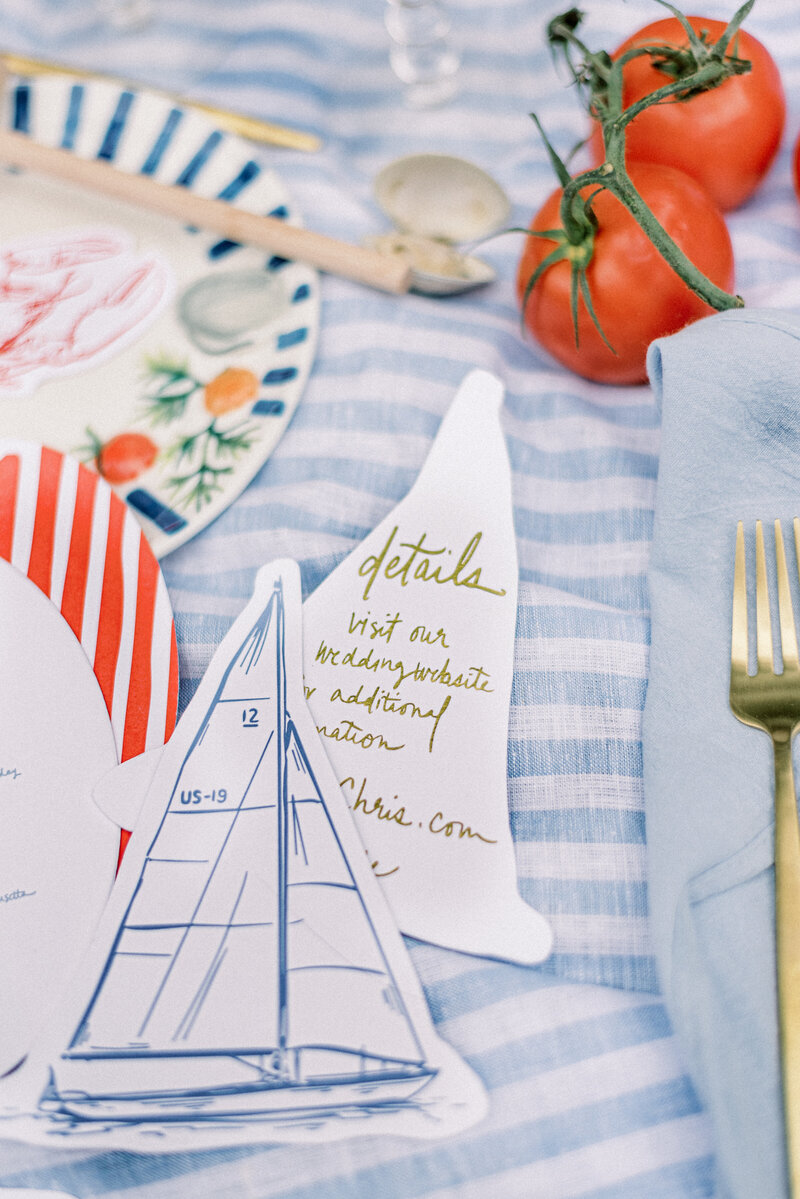 details
visit our
wedding website
additional
Chris.com
12
US-19